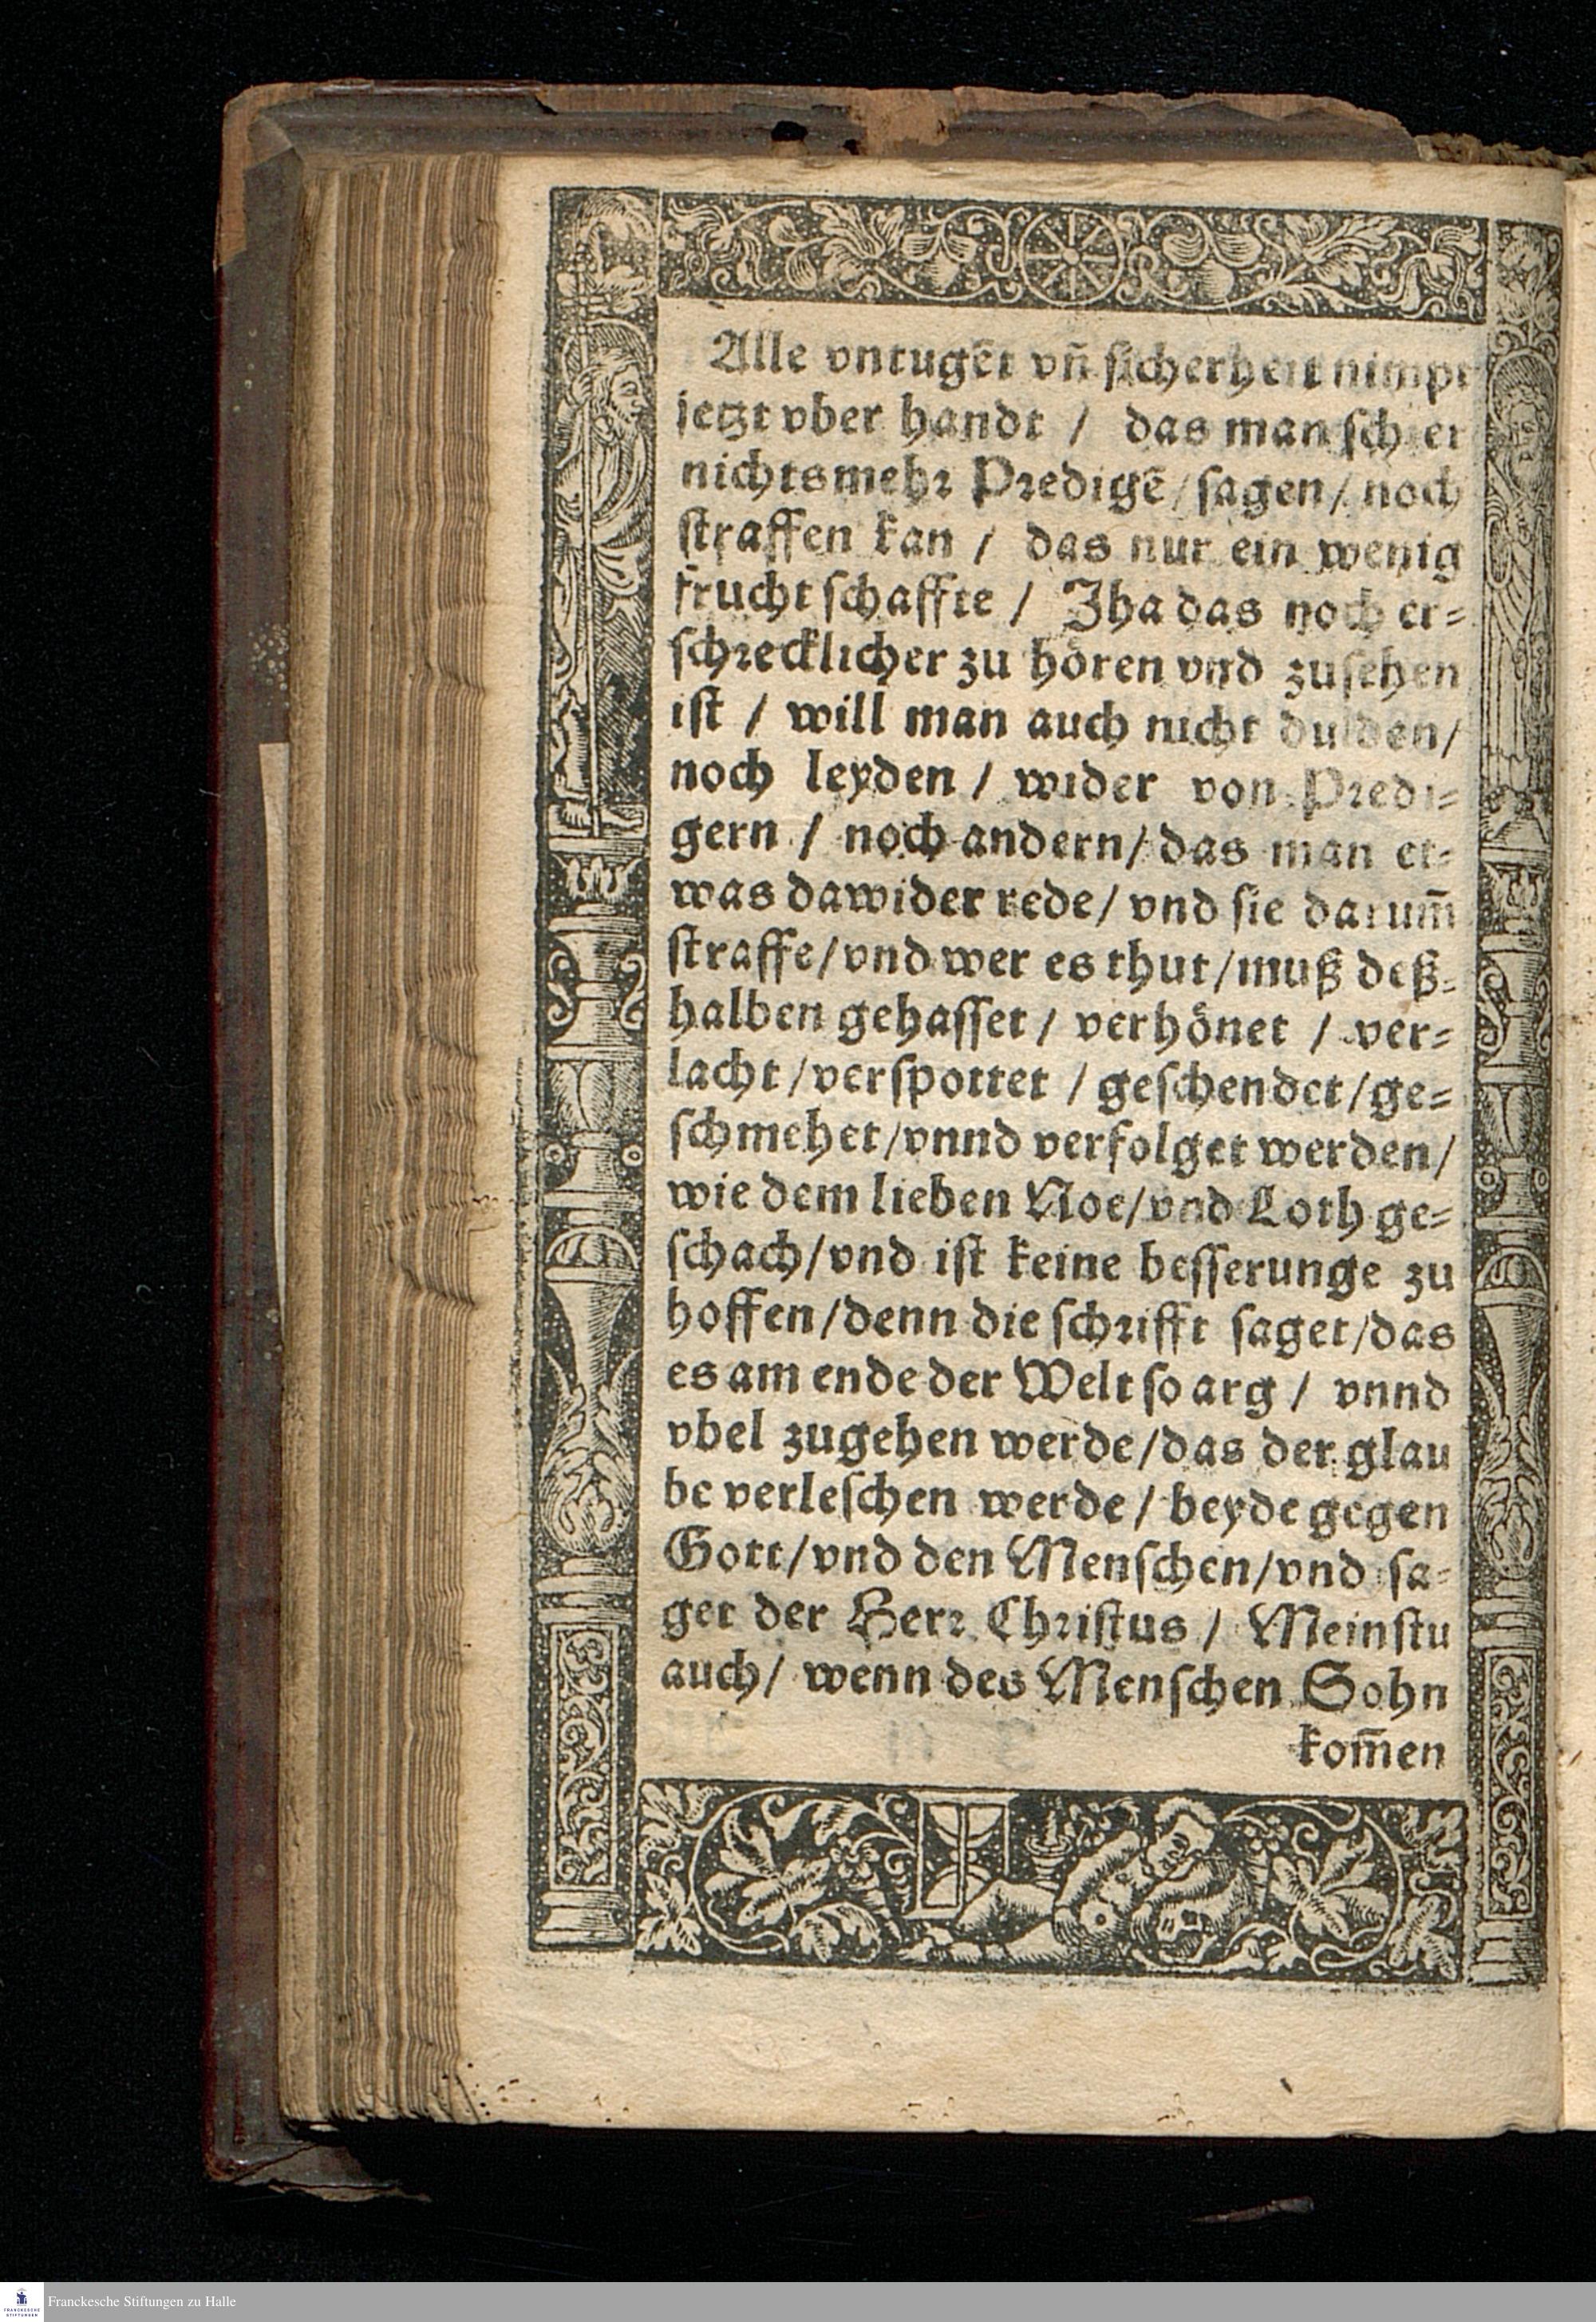 Alle vntugẽt vñ ſicherheit nimpt
jetzt vber handt / das man ſchier
nichts mehr Predigẽ / ſagen / noch
ſtraffen kan / das nur ein wenig
frucht ſchaffte / Jha das noch er⸗
ſchrecklicher zu hören vnd zuſehen
iſt / will man auch nicht dulden /
noch leyden / wider von Predi⸗
gern / noch andern / das man et⸗
was dawider rede / vnd ſie darum̃
ſtraffe / vnd wer es thut / muß deß⸗
halben gehaſſet / verhönet / ver⸗
lacht / verſpottet / geſchendet / ge⸗
ſchmehet / vnnd verfolget werden /
wie dem lieben Noe / vnd Loth ge⸗
ſchach / vnd iſt keine beſſerunge zu
hoffen / denn die ſchrifft ſaget / das
es am ende der Welt ſo arg / vnnd
vbel zugehen werde / das der glau
be verleſchen werde / beyde gegen
Gott / vnd den Menſchen / vnd ſa⸗
get der Herr Chriſtus / Meinſtu
auch / wenn des Menſchen Sohn
kom̃en
Franckesche Stiftungen zu Halle
FRANCKESCHE
STIFTUNGEN